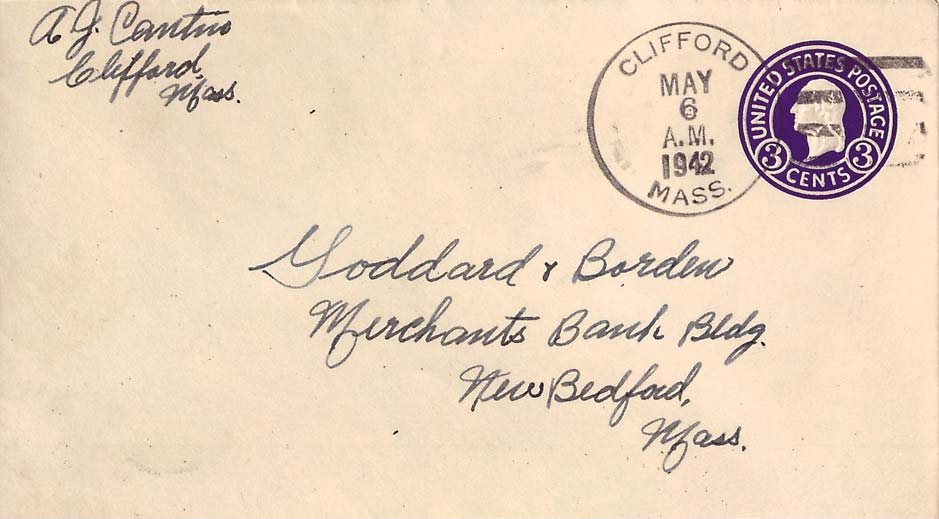 A J. Cantin
Clifford,
Mass.
CLIFFORD
MAY
6
A.M.
1942
MASS.
UNITED STATES POSTAGE
3 CENTS 3
Goddard & Borden
Merchants Bank Bldg.
New Bedford,
Mass.